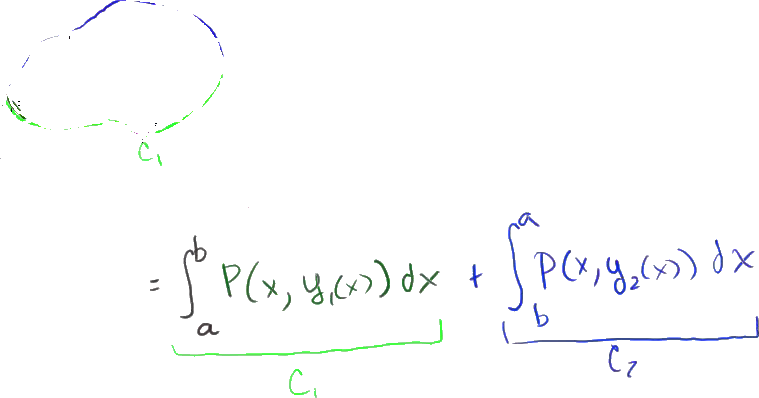 C₁
= ∫ₐᵇ P(x, y₁(x)) dx + ∫_bᵃ P(x, y₂(x)) dx
C₁ C₂